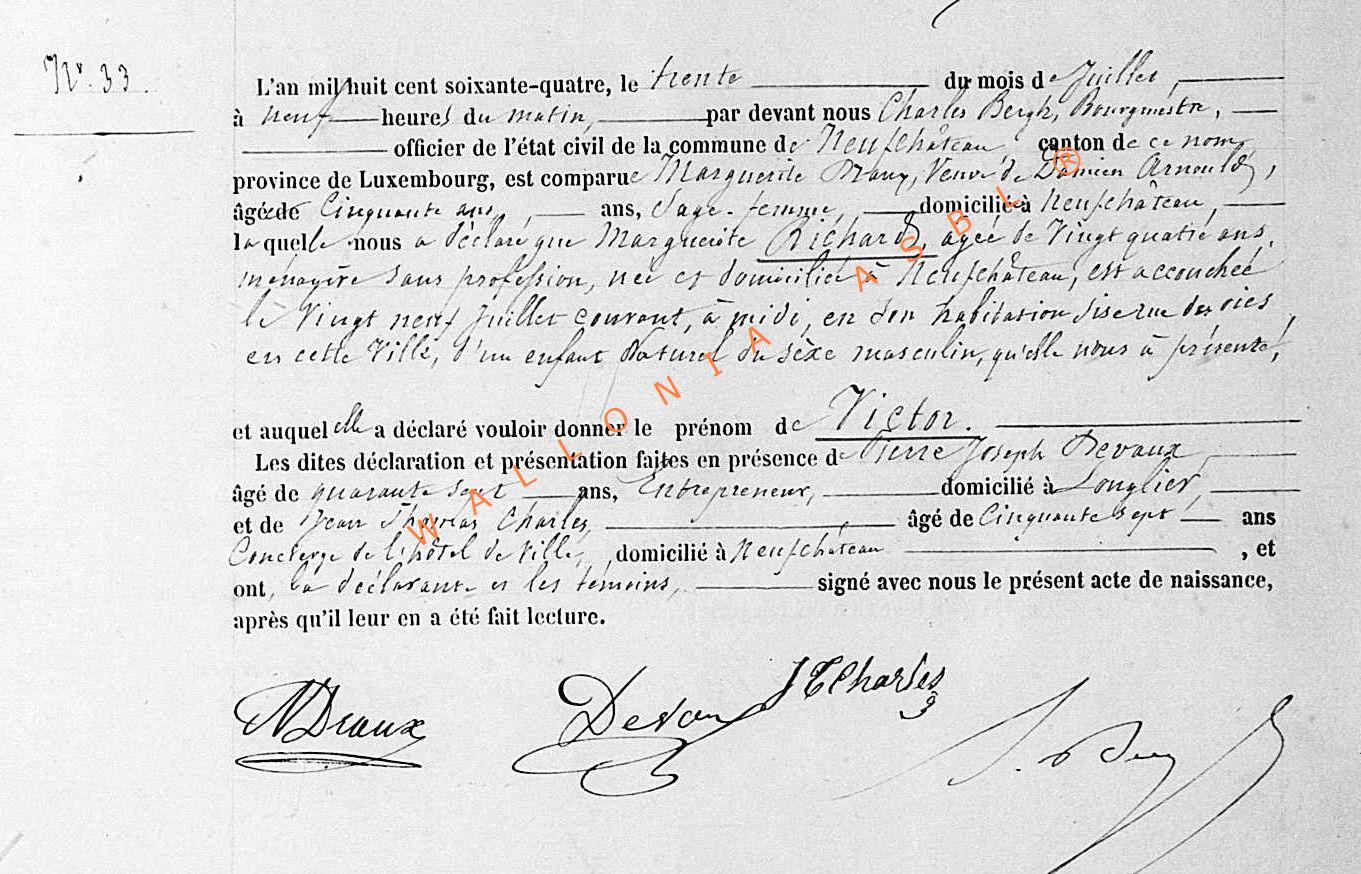 N°. 33.
L'an mil huit cent soixante-quatre, le trente du mois de Juillet,
à neuf heures du matin, par devant nous Charles Bergh, Bourgmestre,
officier de l'état civil de la commune de Neufchâteau canton de ce nom,
province de Luxembourg, est comparue Marguerite Draux, Veuve de Damien Arnould,
âgée de Cinquante ans, ans, Sage-femme, domiciliée à Neufchâteau,
laquelle nous a déclaré que Marguerite Richard, agée de Vingt quatre ans,
ménagère sans profession, née et domiciliée à Neufchâteau, est accouchée
le Vingt neuf Juillet courant, à midi, en son habitation sise rue des oies
en cette Ville, d'un enfant Naturel du sèxe masculin, qu'elle nous à présenté,
et auquel elle a déclaré vouloir donner le prénom de Victor.
Les dites déclaration et présentation faites en présence de Pierre Joseph Devaux
âgé de quarante sept ans, Entrepreneur, domicilié à Longlier,
et de Jean Thomas Charles, âgé de Cinquante sept ans
Concierge de l'hôtel de Ville, domicilié à Neufchâteau , et
ont, la déclarante et les témoins, signé avec nous le présent acte de naissance,
après qu'il leur en a été fait lecture.
MDraux Devaux JTCharles
WALLONIA ASBL ®